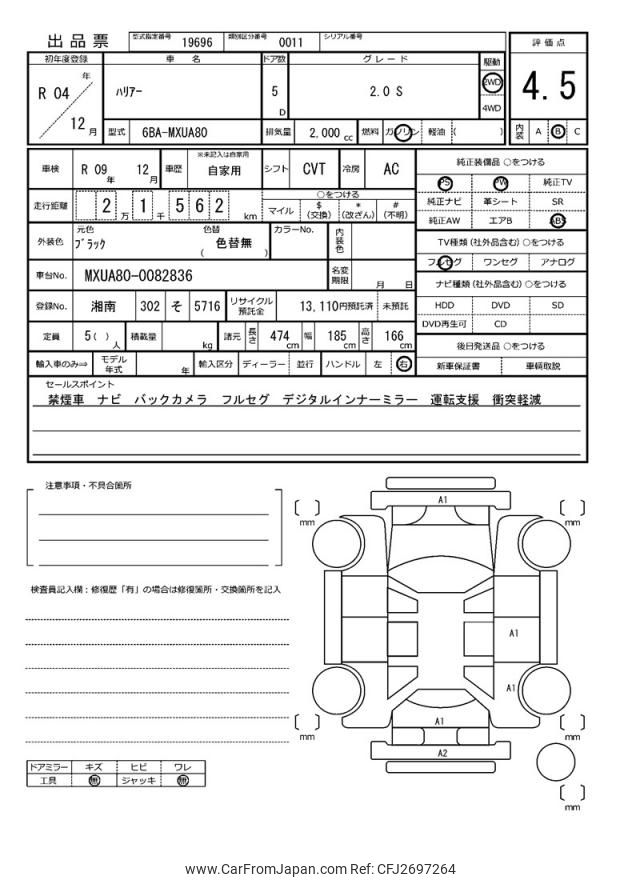 出品票
型式指定番号 19696 類別区分番号 0011 シリアル番号
初年度登録 車名 ドア数 グレード 駆動 評価点
R 04 年 12 月 ハリアー 5 D 2.0 S 2WD 4WD 4.5
型式 6BA-MXUA80 排気量 2,000 cc 燃料 ガソリン 軽油 ( ) 内装 A B C
車検 R 09 年 12 月 車歴 ※未記入は自家用 自家用 シフト CVT 冷房 AC
純正装備品 ○をつける
PS PW 純正TV
純正ナビ 革シート SR
純正AW エアB ABS
走行距離 2 万 1 千 5 6 2 km ○をつける マイル $ (交換) * (改ざん) # (不明)
外装色 元色 ブラック 色替 色替無 ( ) カラーNo. 内装色
TV種類 (社外品含む) ○をつける
フルセグ ワンセグ アナログ
車台No. MXUA80-0082836 名変期限 月 日
ナビ種類 (社外品含む) ○をつける
HDD DVD SD
DVD再生可 CD
登録No. 湘南 302 そ 5716 リサイクル預託金 13,110円預託済 未預託
定員 5 ( ) 人 積載量 kg 諸元 長さ 474 cm 幅 185 cm 高さ 166 cm
後日発送品 ○をつける
新車保証書 車輌取説
輸入車のみ⇒ モデル年式 年 輸入区分 ディーラー 並行 ハンドル 左 右
セールスポイント
禁煙車 ナビ バックカメラ フルセグ デジタルインナーミラー 運転支援 衝突軽減
注意事項・不具合箇所
検査員記入欄：修復歴「有」の場合は修復箇所・交換箇所を記入
A1
mm
mm
A1
A1
A1
A2
mm
mm
mm
ドアミラー キズ ヒビ ワレ
工具 無 ジャッキ 無
www.CarFromJapan.com Ref: CFJ2697264